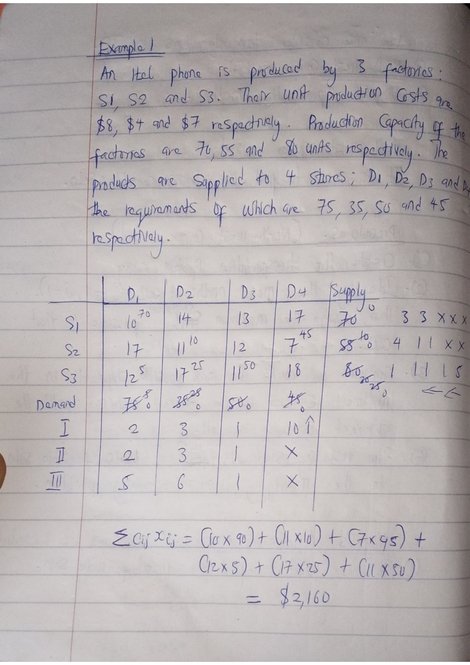 Example 1
An Itel phone is produced by 3 factories:
S1, S2 and S3. Their unit production costs are
$8, $4 and $7 respectively. Production Capacity of the
factories are 70, 55 and 80 units respectively. The
products are supplied to 4 stores; D1, D2, D3 and D4
the requirements of which are 75, 35, 50 and 45
respectively.
D1 D2 D3 D4 Supply
S1 10 70 14 13 17 70 0 3 3 x x x
S2 17 11 10 12 7 45 55 10 0 4 1 1 x x
S3 12 5 17 25 11 50 18 80 25 25 0 1 1 1 1 5
Demand 75 0 35 25 0 50 0 45 0
I 2 3 1 10 ↑
II 2 3 1 x
III 5 6 1 x
Σ Cij xij = (10 x 90) + (11 x 10) + (7 x 45) +
(12 x 5) + (17 x 25) + (11 x 50)
= $2,160